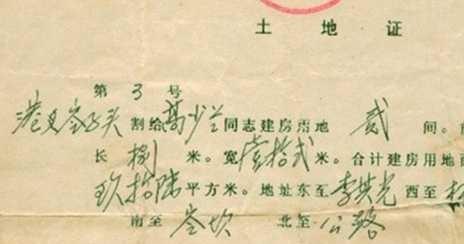 土地证
第 3 号
港又岑子头 割给 高少兰 同志建房用地 贰 间。
长 捌 米。宽 壹拾贰 米。合计建房用地面
玖拾陆 平方米。地址东至 李共光 西至
南至 岑坎 北至 公路